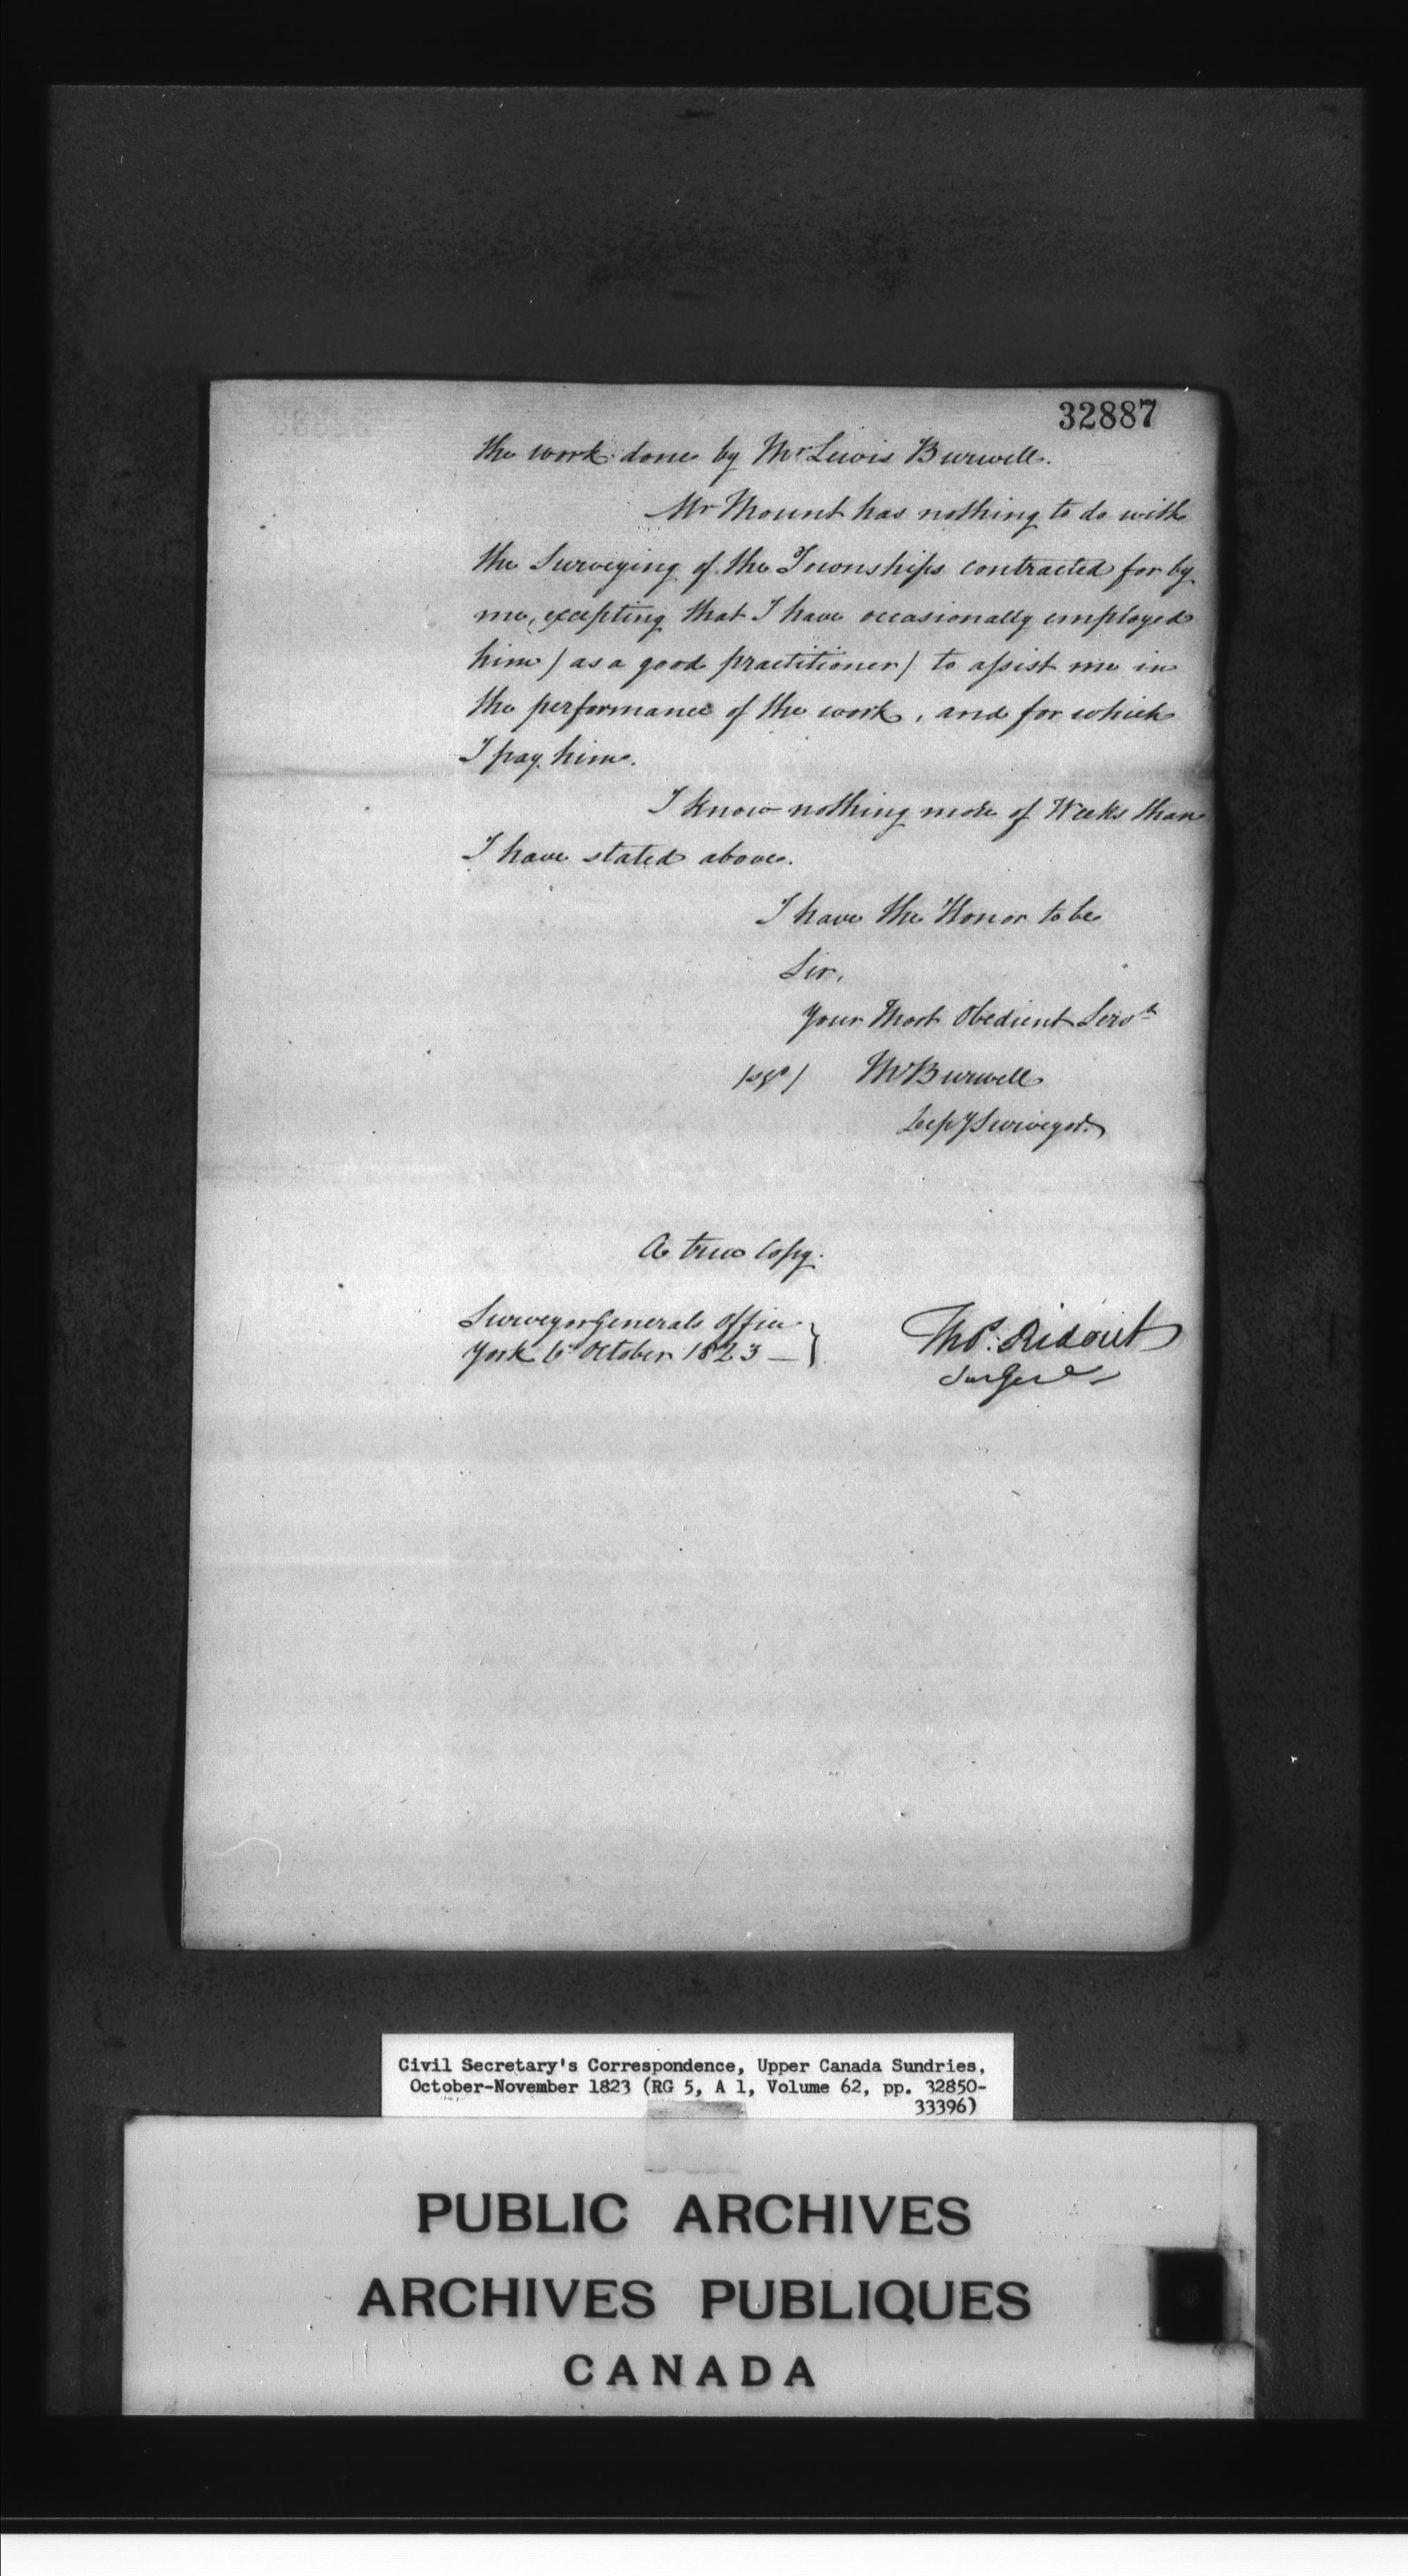 32887
the work done by Mr Lewis Burwell.
Mr Mount has nothing to do with
the Surveying of the Townships contracted for by
me, excepting that I have occasionally employed
him / as a good practitioner / to assist me in
the performance of the work, and for which
I pay him.
I know nothing more of Weeks than
I have stated above.
I have the Honor to be
Sir,
Your Most Obedient Servt
/sgd/ M Burwell
Depy Surveyor.
A true Copy.
Surveyor Generals Office
York 6th October 1823 —
Thos. Ridout
Sur Genl
Civil Secretary's Correspondence, Upper Canada Sundries,
October-November 1823 (RG 5, A 1, Volume 62, pp. 32850-
33396)
PUBLIC ARCHIVES
ARCHIVES PUBLIQUES
CANADA